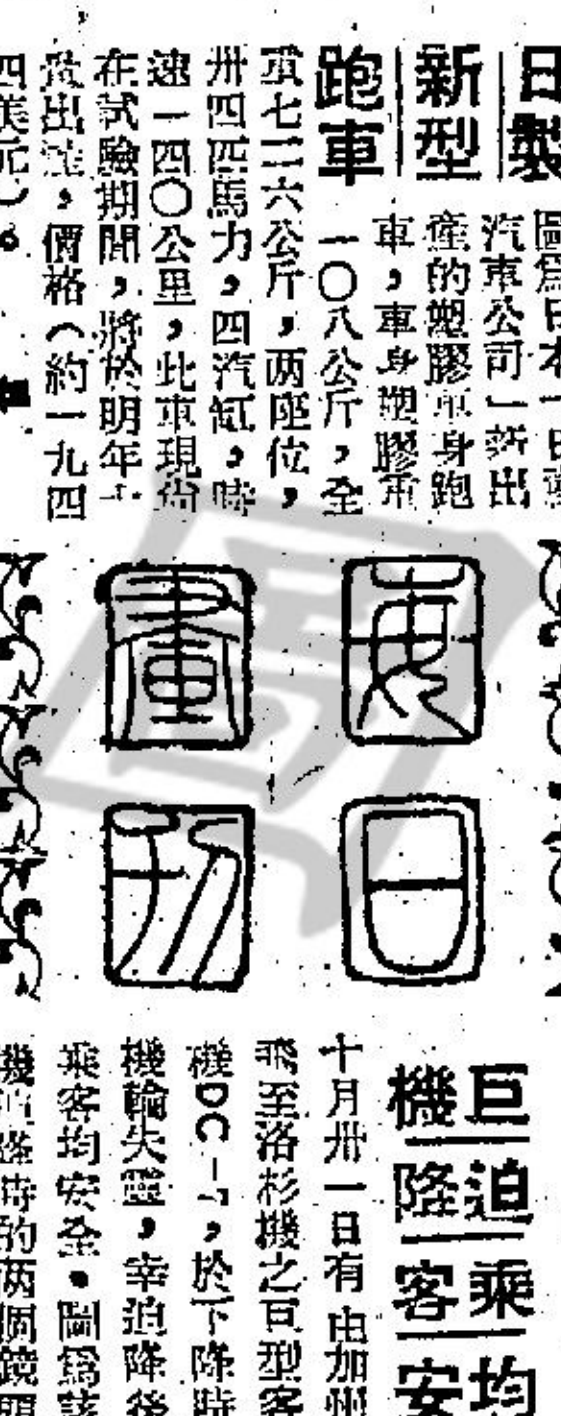 日製
新型
跑車
圖為日本一日
汽車公司一新出
產的塑膠車身跑
車，車身塑膠重
一〇八公斤，全
重七二六公斤，两座位，
卅四匹馬力，四汽缸，時
速一四〇公里，此車現尚
在試驗期間，將於明年
出，價格（約一九四
四美元）。
每日
畫刊
巨機
迫降
乘客
均安
十月卅一日有由加州
飛至洛杉機之巨型客
機DC－7，於下降時
機輪失靈，幸迫降後
乘客均安全。圖為該
機迫降時的两個鏡頭